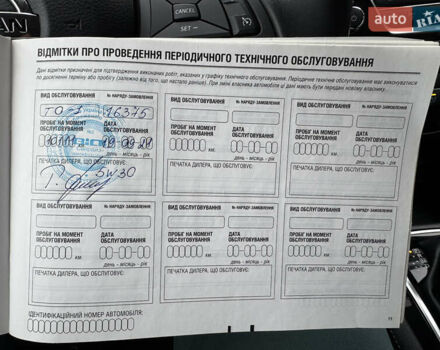 auto.ria
ВІДМІТКИ ПРО ПРОВЕДЕННЯ ПЕРІОДИЧНОГО ТЕХНІЧНОГО ОБСЛУГОВУВАННЯ
Дані відмітки призначені для підтвердження виконаних робіт, вказаних у графіку технічного обслуговування. Періодичне технічне обслуговування має виконуватися
по досягненні терміну або пробігу (залежно від того, що настало раніше). При зміні власника автомобіля ці дані мають бути передані новому власнику.
ВИД ОБСЛУГОВУВАННЯ № НАРЯДУ-ЗАМОВЛЕННЯ
ТО-1 16375
ПРОБІГ НА МОМЕНТ ОБСЛУГОВУВАННЯ ДАТА ОБСЛУГОВУВАННЯ
км. день - місяць - рік
ПЕЧАТКА ДИЛЕРА, ЩО ОБСЛУГОВУЄ:
5W30
ВИД ОБСЛУГОВУВАННЯ № НАРЯДУ-ЗАМОВЛЕННЯ
ПРОБІГ НА МОМЕНТ ОБСЛУГОВУВАННЯ ДАТА ОБСЛУГОВУВАННЯ
км. день - місяць - рік
ПЕЧАТКА ДИЛЕРА, ЩО ОБСЛУГОВУЄ:
ВИД ОБСЛУГОВУВАННЯ № НАРЯДУ-ЗАМОВЛЕННЯ
ПРОБІГ НА МОМЕНТ ОБСЛУГОВУВАННЯ ДАТА ОБСЛУГОВУВАННЯ
км. день - місяць - рік
ПЕЧАТКА ДИЛЕРА, ЩО ОБСЛУГОВУЄ:
ВИД ОБСЛУГОВУВАННЯ № НАРЯДУ-ЗАМОВЛЕННЯ
ПРОБІГ НА МОМЕНТ ОБСЛУГОВУВАННЯ ДАТА ОБСЛУГОВУВАННЯ
км. день - місяць - рік
ПЕЧАТКА ДИЛЕРА, ЩО ОБСЛУГОВУЄ:
ВИД ОБСЛУГОВУВАННЯ № НАРЯДУ-ЗАМОВЛЕННЯ
ПРОБІГ НА МОМЕНТ ОБСЛУГОВУВАННЯ ДАТА ОБСЛУГОВУВАННЯ
км. день - місяць - рік
ПЕЧАТКА ДИЛЕРА, ЩО ОБСЛУГОВУЄ:
ВИД ОБСЛУГОВУВАННЯ № НАРЯДУ-ЗАМОВЛЕННЯ
ПРОБІГ НА МОМЕНТ ОБСЛУГОВУВАННЯ ДАТА ОБСЛУГОВУВАННЯ
км. день - місяць - рік
ПЕЧАТКА ДИЛЕРА, ЩО ОБСЛУГОВУЄ:
ІДЕНТИФІКАЦІЙНИЙ НОМЕР АВТОМОБІЛЯ:
11